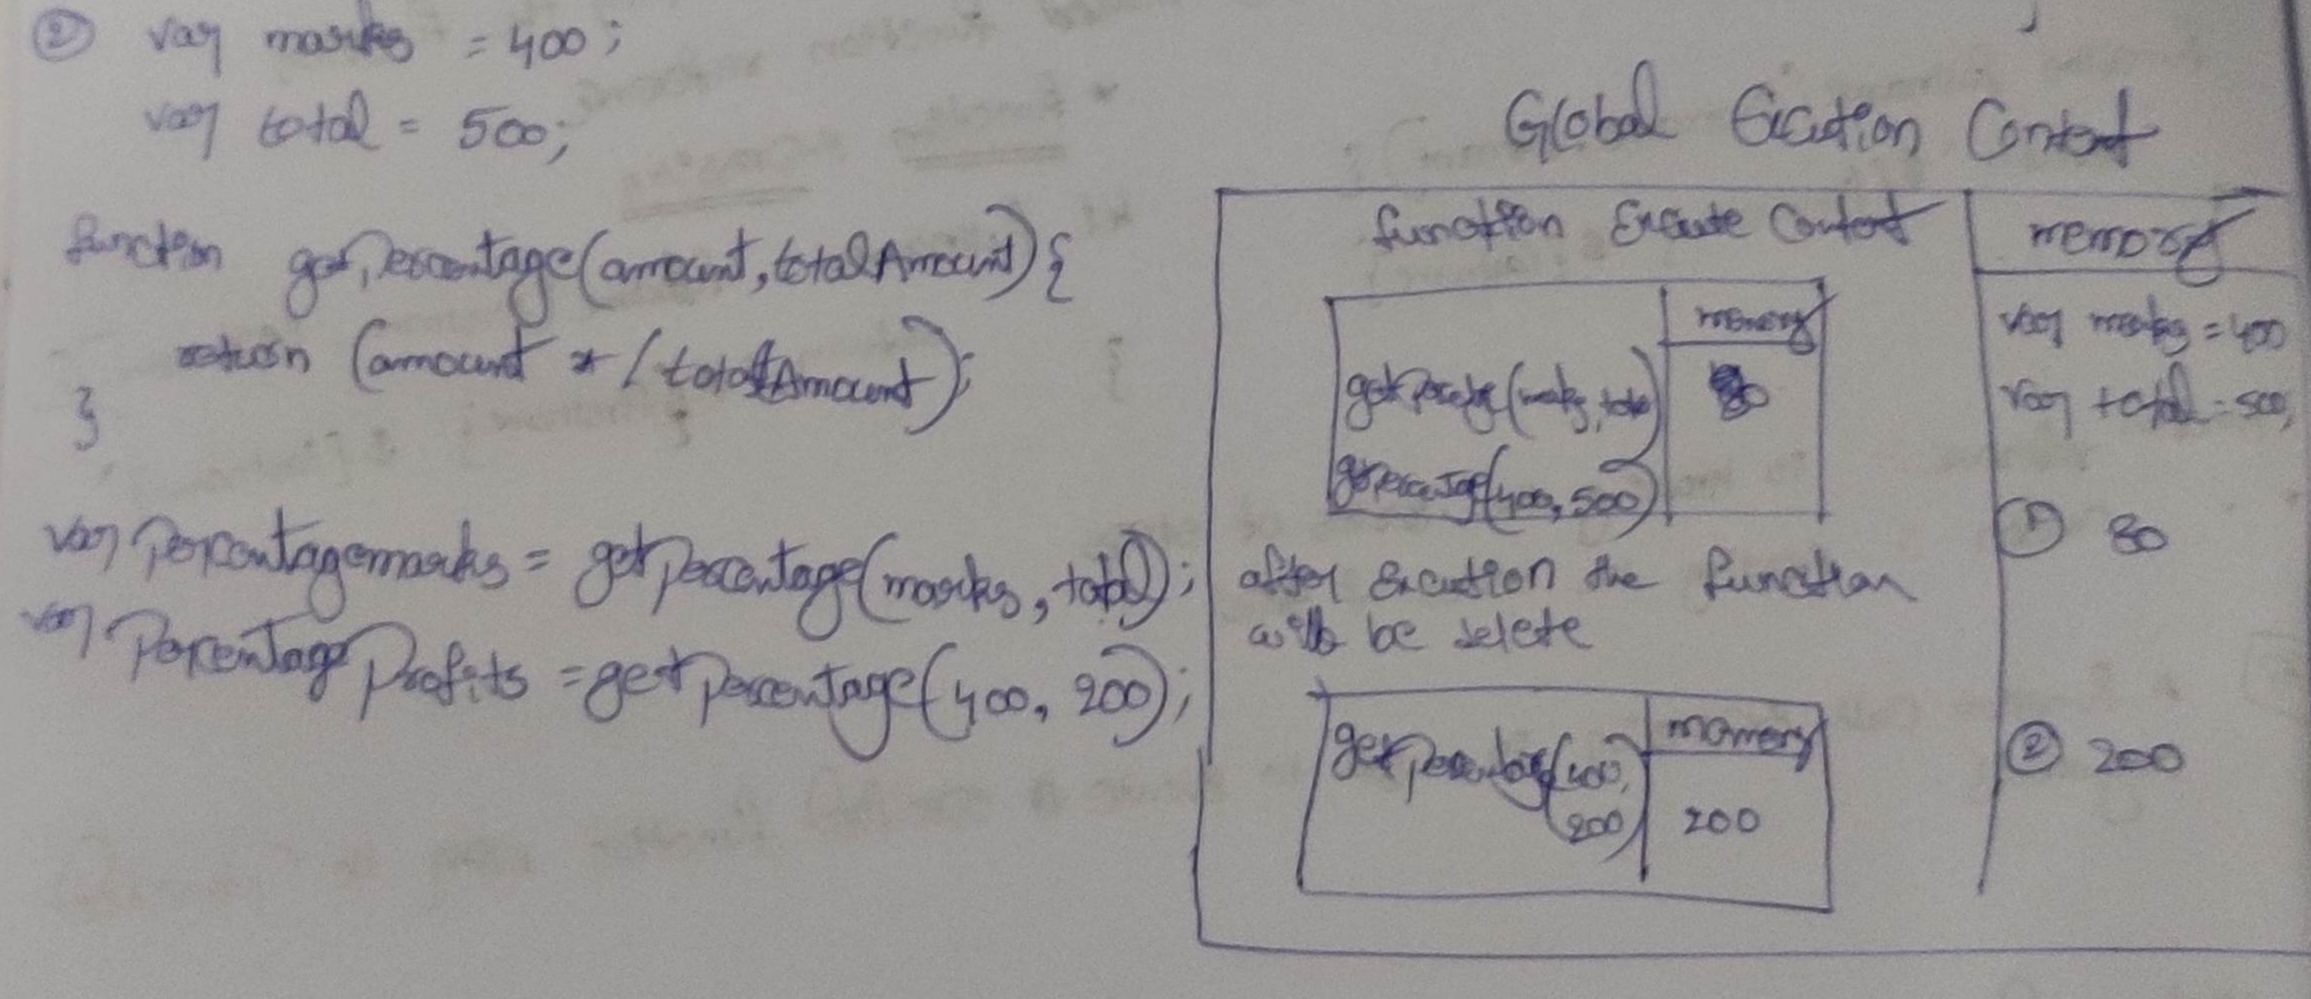 ② var marks = 400;
var total = 500;
function getPercentage(amount, totalAmount) {
return (amount * / totalAmount);
}
var Percentagemarks = getpercentage(marks, total);
var PercentageProfits = getPercentage(400, 200);
Global Excution Context
function Excute Context
memory
memory
getPercentage(marks, total)
80
getpercentage(400, 500)
var marks = 400
var total = 500,
① 80
after Excution the function
will be delete
getpercentage(400,
200)
memory
200
② 200